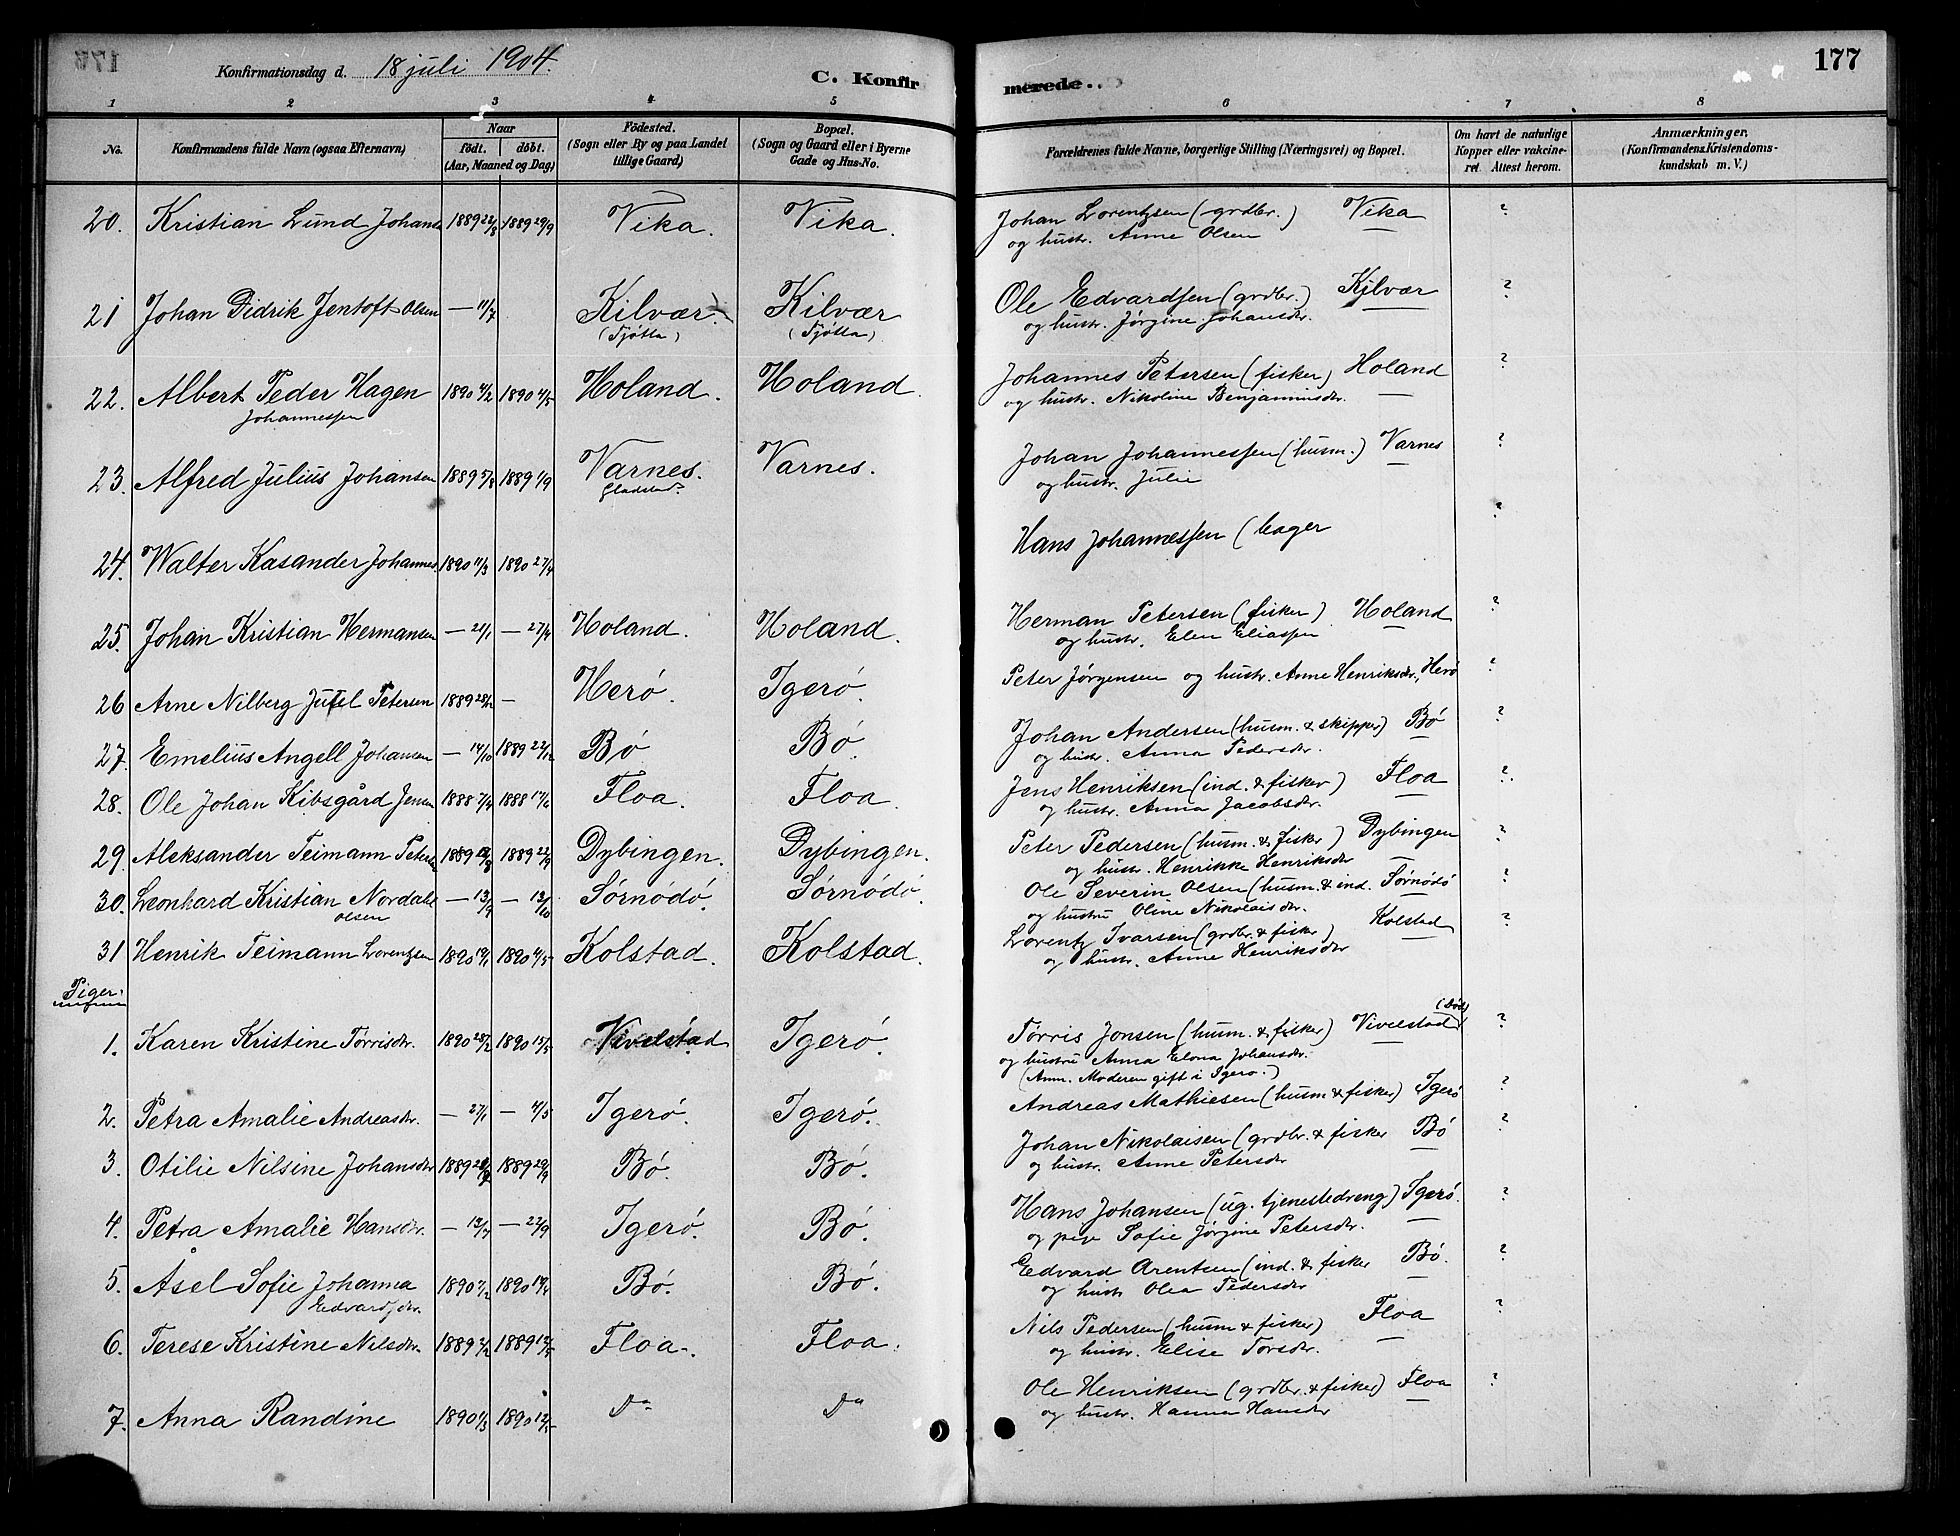 Konfirmationsdag d. 18 juli 1904.
C. Konfir
merede..
177
1 2 3 4 5
6 7 8
No.
Konfirmandens fulde Navn (ogsaa Efternavn)
Naar
født. døbt.
(Aar, Maaned og Dag)
Fødested.
(Sogn eller By og paa Landet
tillige Gaard)
Bopæl.
(Sogn og Gaard eller i Byerne
Gade og Hus-No.
Forældrenes fulde Navne, borgerlige Stilling (Næringsvei) og Bopæl.
Om havt de naturlige
Kopper eller vakcine-
ret. Attest herom.
Anmærkninger.
(Konfirmandens Kristendoms-
kundskab m. V.)
20. Kristian Lund Johans 1889 22/8 1889 29/9 Vika. Vika. Johan Lorentzsen (grdbr.) Vika ?
og hustr. Anne Olsen
21 Johan Didrik Jentoft Olsen — 11/7 Kilvær. Kilvær Ole Edvardsen (grdbr.) Kilvær ?
(Tjøtta) (Tjøtta) og hustr. Jørgine Johansdr.
22. Albert Peder Hagen 1890 4/2 1890 4/5 Holand. Holand. Johannes Petersen (fisker) Holand ?
Johannessen og hustr. Nikoline Benjaminsdr.
23. Alfred Julius Johansen 1889 5/8 1889 1/9 Varnes. Varnes. Johan Johannessen (husm.) Varnes ?
Gladstad. og hustr. Julie
24. Walter Kasander Johannes 1890 11/3 1890 27/4 Hans Johannessen (bager ?
25. Johan Kristian Hermansen — 21/1 — 27/4 Holand. Holand. Herman Petersen (fisker) Holand ?
og hustr. Elen Eliassen
26 Arne Nilberg Jutel Petersen 1889 28/12 — Herø. Igerø. Peter Jørgensen og hustr. Anne Henriksdr., Herø ?
27. Emelius Angell Johansen — 14/10 1889 22/12 Bø Bø. Johan Andersen (husm. & skipper) Bø ?
og hustr. Anna Pedersdr.
28. Ole Johan Kibsgård Jensen 1888 7/4 1888 17/6 Floa. Floa. Jens Henriksen (ind. & fisker) Floa ?
og hustr. Anna Jacobsdr.
29. Aleksander Teimann Peters 1889 1889 22/9 Dybingen. Dybingen. Peter Pedersen (husm. & fisker) Dybingen ?
og hustr. Henrikke Henriksdr
30. Leonhard Kristian Nordahl — 13/9 — 13/10 Sørnødø. Sørnødø. Ole Severin Olsen (husm. & ind. Sørnødø ?
Olsen og hustru Oline Nikolaisdr.
31 Henrik Teimann Lorentzsen 1890 19/1 1890 4/5 Kolstad. Kolstad. Lorentz Ivarsen (grdbr. & fisker) Kolstad ?
og hustr. Anne Henriksdr
Piger.
(død)
1. Karen Kristine Tørrisdr. 1890 28/2 1890 15/5 Vivelstad Igerø. Tørris Jonsen (husm. & fisker) Vivelstad ?
og hustru Anna Elona Johansdr.
(Anm. Moderen gift i Igerø.)
2. Petra Amalie Andreasdr. — 27/1 — 4/5 Igerø. Igerø. Andreas Mathiesen (husm & fisker) Igerø ?
3. Otilie Nilsine Johansdr 1889 1889 29/9 Bø. Bø. Johan Nikolaisen (grdbr. & fisker Bø ?
og hustr. Anne Petersdr
4. Petra Amalie Hansdr. — 12/7 — 22/9 Igerø. Bø. Hans Johansen (ug. tjenestedreng) Igerø. ?
og pige Sofie Jørgine Petersdr.
5. Åsel Sofie Johanna 1890 7/2 1890 19/4 Bø. Bø. Edvard Arentsen (ind. & fisker Bø. ?
Edvardsdr. og hustr Olea Pedersdr
6. Terese Kristine Nilsdr. 1889 2/2 1889 12/5 Floa. Floa. Nils Pedersen (husm & fisker) Floa ?
og hustr. Elise Torsdr.
7. Anna Randine 1890 1/3 1890 Do Do Ole Henriksen (grdbr. & fisker) Floa ?
og hustr. Hanna Hansdr